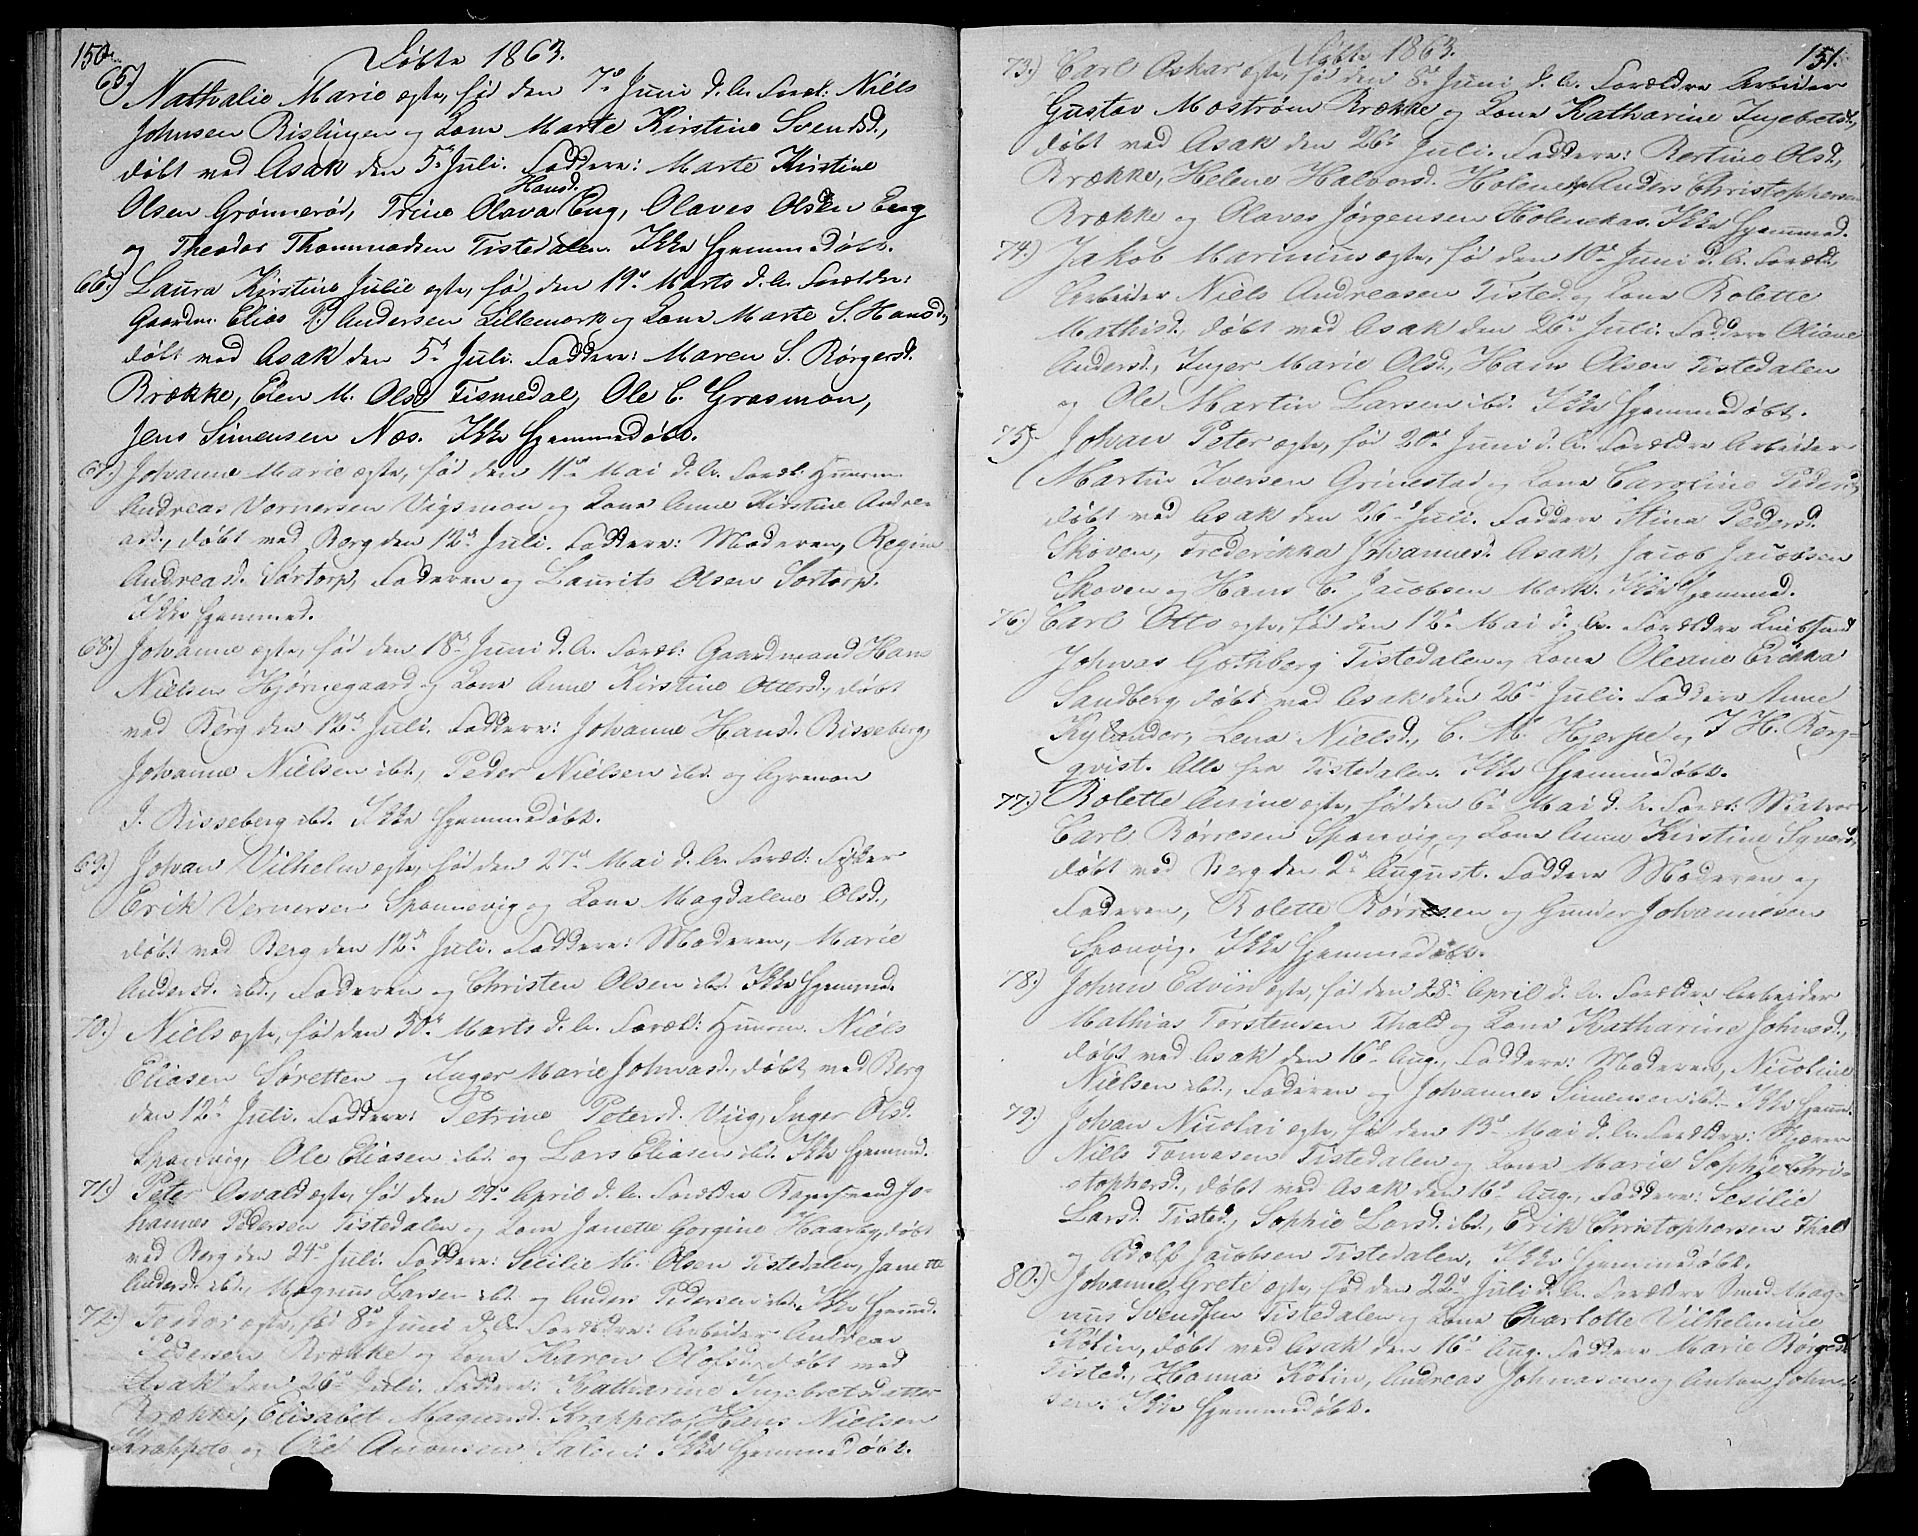 150.
Døbte 1863.
65.) Nathalie Marie ægte, fød den 7de Juni d. A. Foræl: Niels
Johnsen Rislingen og Kone Marte Kirstine Svendsd.,
døbt ved Asak den 5te Juli. Faddere: Marte Kirstine
Hansd.
Olsen Grønnerød, Trine Olava Eng, Olaves Olsen Eng
og Theodor Thommadsen Tistedalen. Ikke hjemmedøbt.
66.) Laura Kirstine Julie ægte, fød den 19de Marts d. A. Forældre:
Gaardm. Elias P. Andersen Lillemork og Kone Marte S. Hansd.,
døbt ved Asak den 5te Juli. Faddere: Maren S. Børgersd.
Brække, Elen M. Olsd. Tismedal, Ole C. Grasmon,
Jens Simensen Næs. Ikke hjemmedøbt.
67.) Johanne Marie ægte, fød den 11te Mai d. A. Foræl: Huusm.
Andreas Vernersen Vigsmon og Kone Anne Kirstine Andre-
asd., døbt ved Berg den 12te Juli. Faddere: Moderen, Regine
Andreasd. Sørtorp, Faderen og Laurits Olsen Sortorp.
Ikke hjemmed.
68.) Johanne ægte, fød den 18de Juni d. A. Foræl: Gaardmand Hans
Nielsen Hjørnegaard og Kone Anne Kirstine Ottersd., døbt
ved Berg den 12te Juli. Faddere: Johanne Hansd. Bisseberg,
Johanne Nielsen ibd., Peder Nielsen ibd. og Gremon
J. Bisseberg ibd. Ikke hjemmedøbt.
69.) Johan Vilhelm ægte, fød den 27de Mai d. A. Foræl: Fisker
Erik Vernersen Sponnevig og Kone Magdalene Olsd.,
døbt ved Berg den 12te Juli. Faddere: Moderen, Marie
Andersd. ibd., Faderen og Christen Olsen ibd. Ikke hjemmed.
70.) Niels ægte, fød den 30te Marts d. A. Foræl: Huusm. Niels
Eliasen Søretten og Inger Marie Johnasd., døbt ved Berg
den 12te Juli. Faddere: Petrine Petersd. Viig, Inger Olsd.
Sponvig, Ole Eliasen ibd. og Lars Eliasen ibd. Ikke hjemmed.
71.) Peter Osvald ægte, fød den 29de April d. A. Forældre Johannes Jo-
hannes Pedersen Tistedalen og Kone Janette Gorgine Haarby, døbt
ved Berg den 24de Juli. Faddere: Secilie M. Olsen Tistedalen, Janette
Andersd. ibd., Magnus Larsen ibd. og Anders Pedersen ibd. Ikke hjemmed.
72.) Teodor ægte, fød 8de Juni d. A. Forældre: Arbeider Andreas
Pedersen Brække og Kone Karen Olofsd., døbt ved
Asak den 26de Juli. Faddere: Katharine Ingebretsdatter
Brække, Elisabet Magnusd. Krappeto, Hans Nielsen
Krappeto og Ole Aronsen Salen. Ikke hjemmedøbt.
151.
Døbte 1863.
73.) Carl Oskar ægte, fød den 8de Juni d. A. Forældre Arbeider
Gustav Mostrøm Brække og Kone Katharine Ingebretsd.,
døbt ved Asak den 26de Juli. Faddere: Bertine Olsd.,
Brække, Helene Halvorsd. Holenek., Anders Christophersen
Brække og Olaves Jørgensen Holenekas. Ikke hjemmed.
74.) Jakob Marinius ægte, fød den 10de Juni d. A. Foræld.
Arbeider Niels Andreasen Tisted. og Kone Bolette
Mathisd., døbt ved Asak den 26de Juli. Faddere Oliane
Andersd., Inger Marie Olsd., Hans Olsen Tistedalen
og Ole Martin Larsen ibd. Ikke hjemmedøbt.
75.) Johan Peter ægte, fød 20de Juni d. A. Forældre Arbeider
Martin Iversen Grimestad og Kone Caroline Pedersd.,
døbt ved Asak den 26de Juli. Faddere Stina Pedersd.
Skoven, Frederikka Johannesd. Asak, Jacob Jacobsen
Skoven og Hans C. Jacobsen Mork. Ikke hjemmed.
76.) Carl Otto ægte, fød den 12te Mai d. A. Forældre
Johnas Gothberg Tistedalen og Kone Oleane Erikka
Sandberg, døbt ved Asak den 26de Juli. Faddere Anne
Kylander, Lena Nielsd., C. M. Hjerpe og J. H. Berg-
qvist. Alle fra Tistedalen. Ikke hjemmedøbt.
77.) Bolette Anine ægte, fød den 6te Mai d. A. Foræl: Matros
Carl Børresen Sponvig og Kone Anne Kirstine Syvers.,
døbt ved Berg den 2den August. Faddere Moderen og
Faderen, Bolette Børresen og Gunder Johannesen
Sponvig. Ikke hjemmedøbt.
78.) Johan Edvin ægte, fød den 28de April d. A. Forældre Arbeider
Mathias Torstensen Thald og Kone Katharine Johnsd.,
døbt ved Asak den 16de Aug., Faddere: Moderen, Nicoline
Nielsen ibd., Faderen og Johannes Simensen ibd. Ikke hjemmd.
79.) Johan Nicolai ægte, fød den 13de Mai d. A. Forældre: Skjærer
Niels Tomasen Tistedalen og Kone Marie Sophie Chri-
stophersd., døbt ved Asak den 16de Aug., Faddere: Sesilie
Larsd. Tisted., Sophie Larsd. ibd., Erik Christophersen Thald
og Adolf Jacobsen Tistedalen. Ikke hjemmedøbt.
80.) Johanne Grete ægte, fød den 22de Juli d. A. Forældre Smed Mag-
nus Svendsen Tistedalen og Kone Charlotte Vilhelmine
Købin, døbt ved Asak den 16de Aug. Faddere Marie Børgesd.
Tisted., Hanna Købin, Andreas Johnasen og Anton Johne-
sen. Ikke hjemmedøbt.